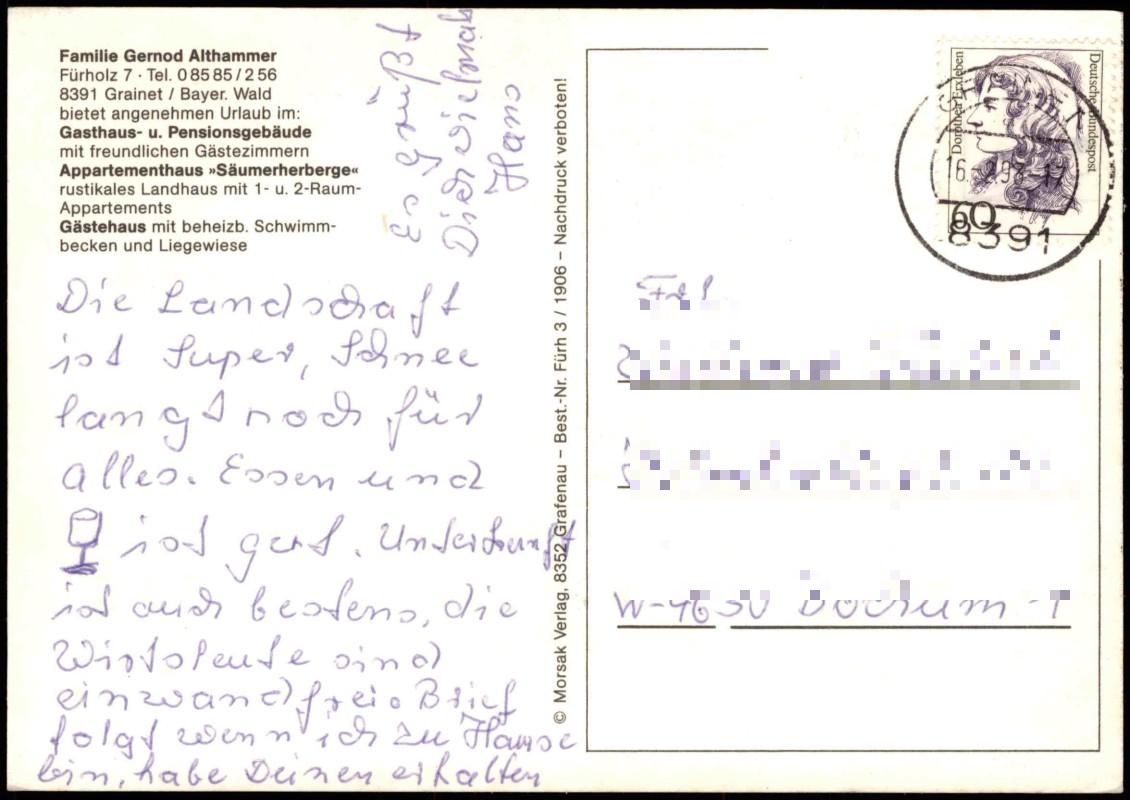 Familie Gernod Althammer
Fürholz 7 · Tel. 0 85 85 / 2 56
8391 Grainet / Bayer. Wald
bietet angenehmen Urlaub im:
Gasthaus- u. Pensionsgebäude
mit freundlichen Gästezimmern
Appartementhaus »Säumerherberge«
rustikales Landhaus mit 1- u. 2-Raum-
Appartements
Gästehaus mit beheizb. Schwimm-
becken und Liegewiese
Die Landschaft
ist super, Schnee
langt noch für
alles. Essen und
ist gut. Unterkunft
ist auch bestens, die
Wirtsleute sind
einwandfrei. Brief
folgt wenn ich zu Hause
bin, habe Deinen erhalten
Es grüßt
Dich vielmals
Hans
© Morsak Verlag, 8352 Grafenau – Best.-Nr. Fürh 3 / 1906 – Nachdruck verboten!
Dorothea Erxleben
Deutsche Bundespost
60
8391
Frl
W-4630 Bochum-1